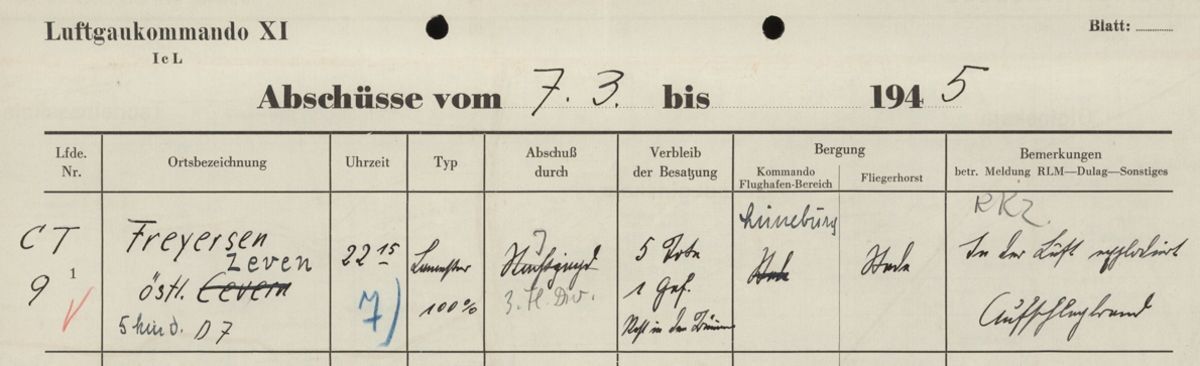 Luftgaukommando XI
Blatt:
I c L
Abschüsse vom 7. 3. bis 1945
Lfde. Nr.
Ortsbezeichnung
Uhrzeit
Typ
Abschuß durch
Verbleib der Besatzung
Bergung
Kommando Flughafen-Bereich
Fliegerhorst
Bemerkungen
betr. Meldung RLM—Dulag—Sonstiges
CT 9
1
Freyersen
Zeven
östl.
D 7
22 15
7)
Lancaster
100%
Nachtjagd
3. Div.
5 Tote
1 Gef.
Rest in den
Lüneburg
Stade
Stade
RKZ.
In der Luft explodiert
Aufschlagbrand